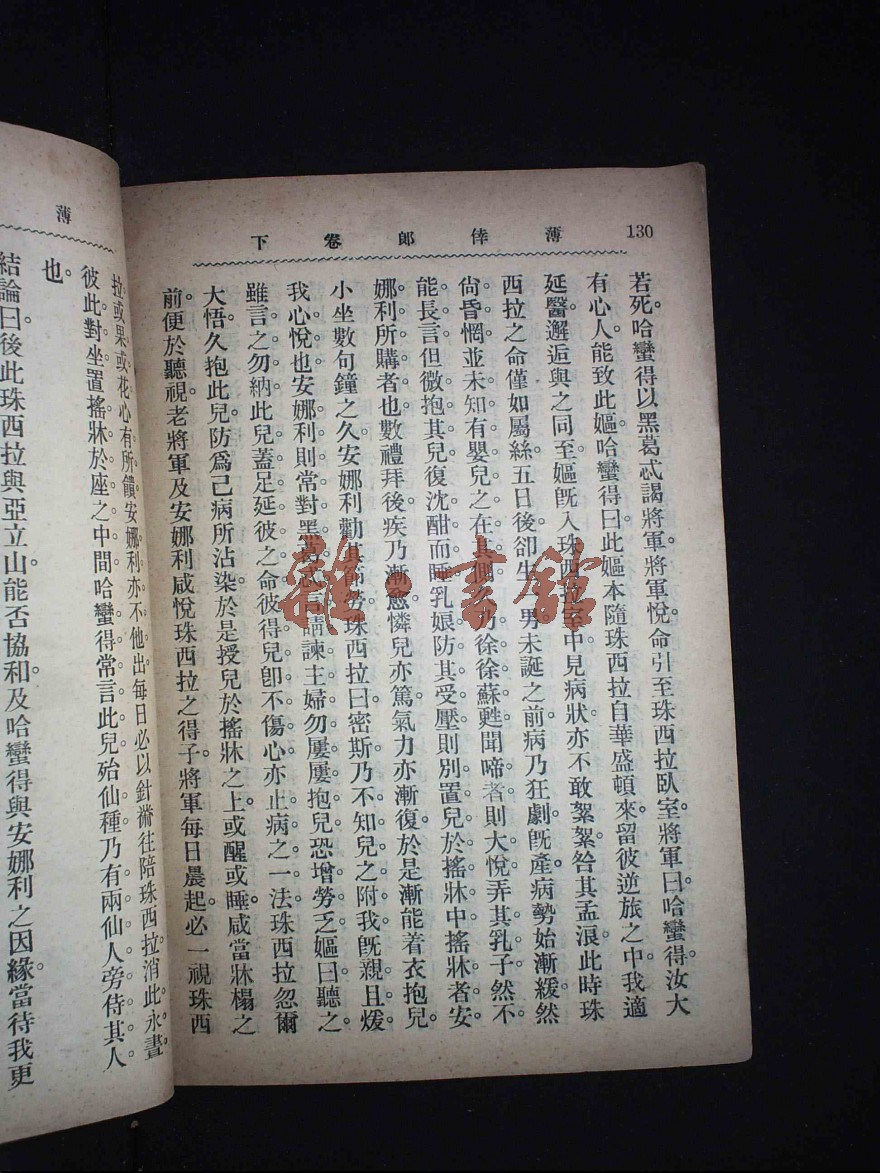 130
薄倖郎卷下
若死。哈蠻得以黑葛忒謁將軍。將軍悅。命引至珠西拉臥室。將軍曰。哈蠻得。汝大
有心人。能致此嫗。哈蠻得曰。此嫗本隨珠西拉自華盛頓來。留彼逆旅之中。我適
延醫。邂逅與之同至。嫗旣入珠西拉室中。見病狀。亦不敢絮絮咎其孟浪。此時珠
西拉之命。僅如屬絲。五日後。卻生一男。未誕之前。病乃狂劇。旣產。病勢始漸緩。然
尙昏惘。並未知有嬰兒之在其側。久乃徐徐蘇甦。聞啼者則大悅。弄其乳子。然不
能長言。但微抱其兒。復沈酣而睡。乳娘防其受壓。則別置兒於搖牀中。搖牀者。安
娜利所購者也。數禮拜後。疾乃漸愈。憐兒亦篤。氣力亦漸復。於是漸能着衣抱兒
小坐數句鐘之久。安娜利勸其勿勞。珠西拉曰。密斯乃不知兒之附我。旣親且煖
我心悅也。安娜利則常對黑葛忒言。請諫主婦勿屢屢抱兒。恐增勞乏。嫗曰。聽之。
雖言之勿納。此兒蓋足延彼之命。彼得兒卽不傷心。亦止病之一法。珠西拉忽爾
大悟。久抱此兒。防爲己病所沾染。於是授兒於搖牀之上。或醒或睡。咸當牀榻之
前。便於聽視。老將軍及安娜利咸悅珠西拉之得子。將軍每日晨起。必一視珠西
薄
拉。或果或花。心有所饋。安娜利亦不他出。每日必以針黹往陪珠西拉。消此永晝。
彼此對坐。置搖牀於座之中間。哈蠻得常言此兒殆仙種。乃有兩仙人旁侍其人
也。
結論曰。後此珠西拉與亞立山能否協和。及哈蠻得與安娜利之因緣。當待我更